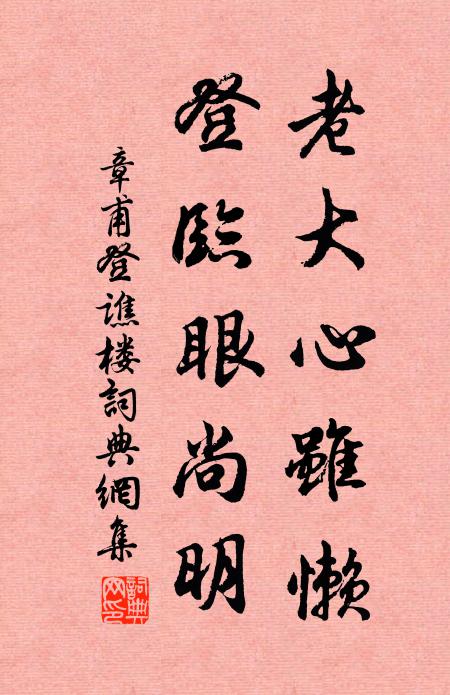 老大心雖懶
登臨眼尚明
章甫登譙楼詞典網集
詞典网印